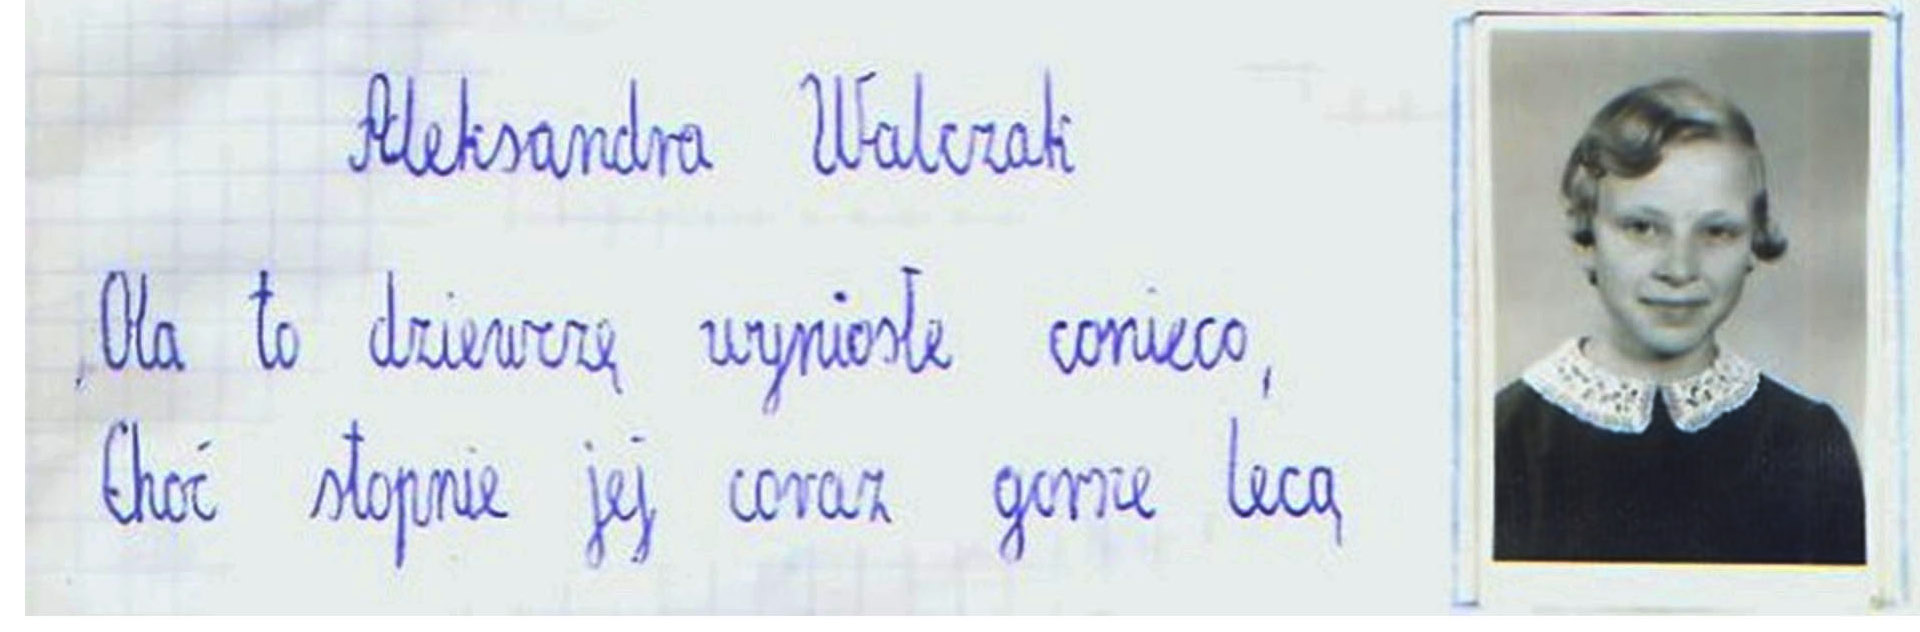 Aleksandra Walczak
Ola to dziewczę wyniosłe conieco,
Choć stopnie jej coraz gorsze lecą